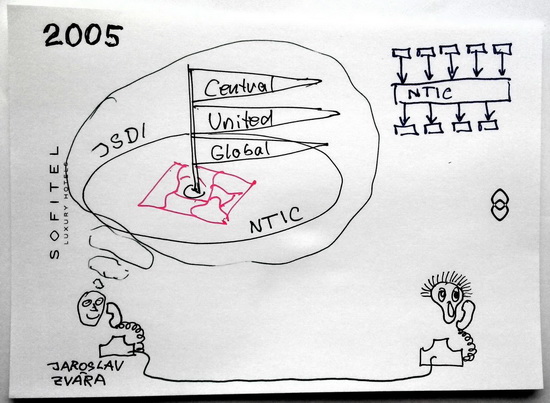 2005
Central
United
Global
JSDI
NTIC
NTIC
SOFITEL
LUXURY HOTELS
JAROSLAV
ZVÁRA